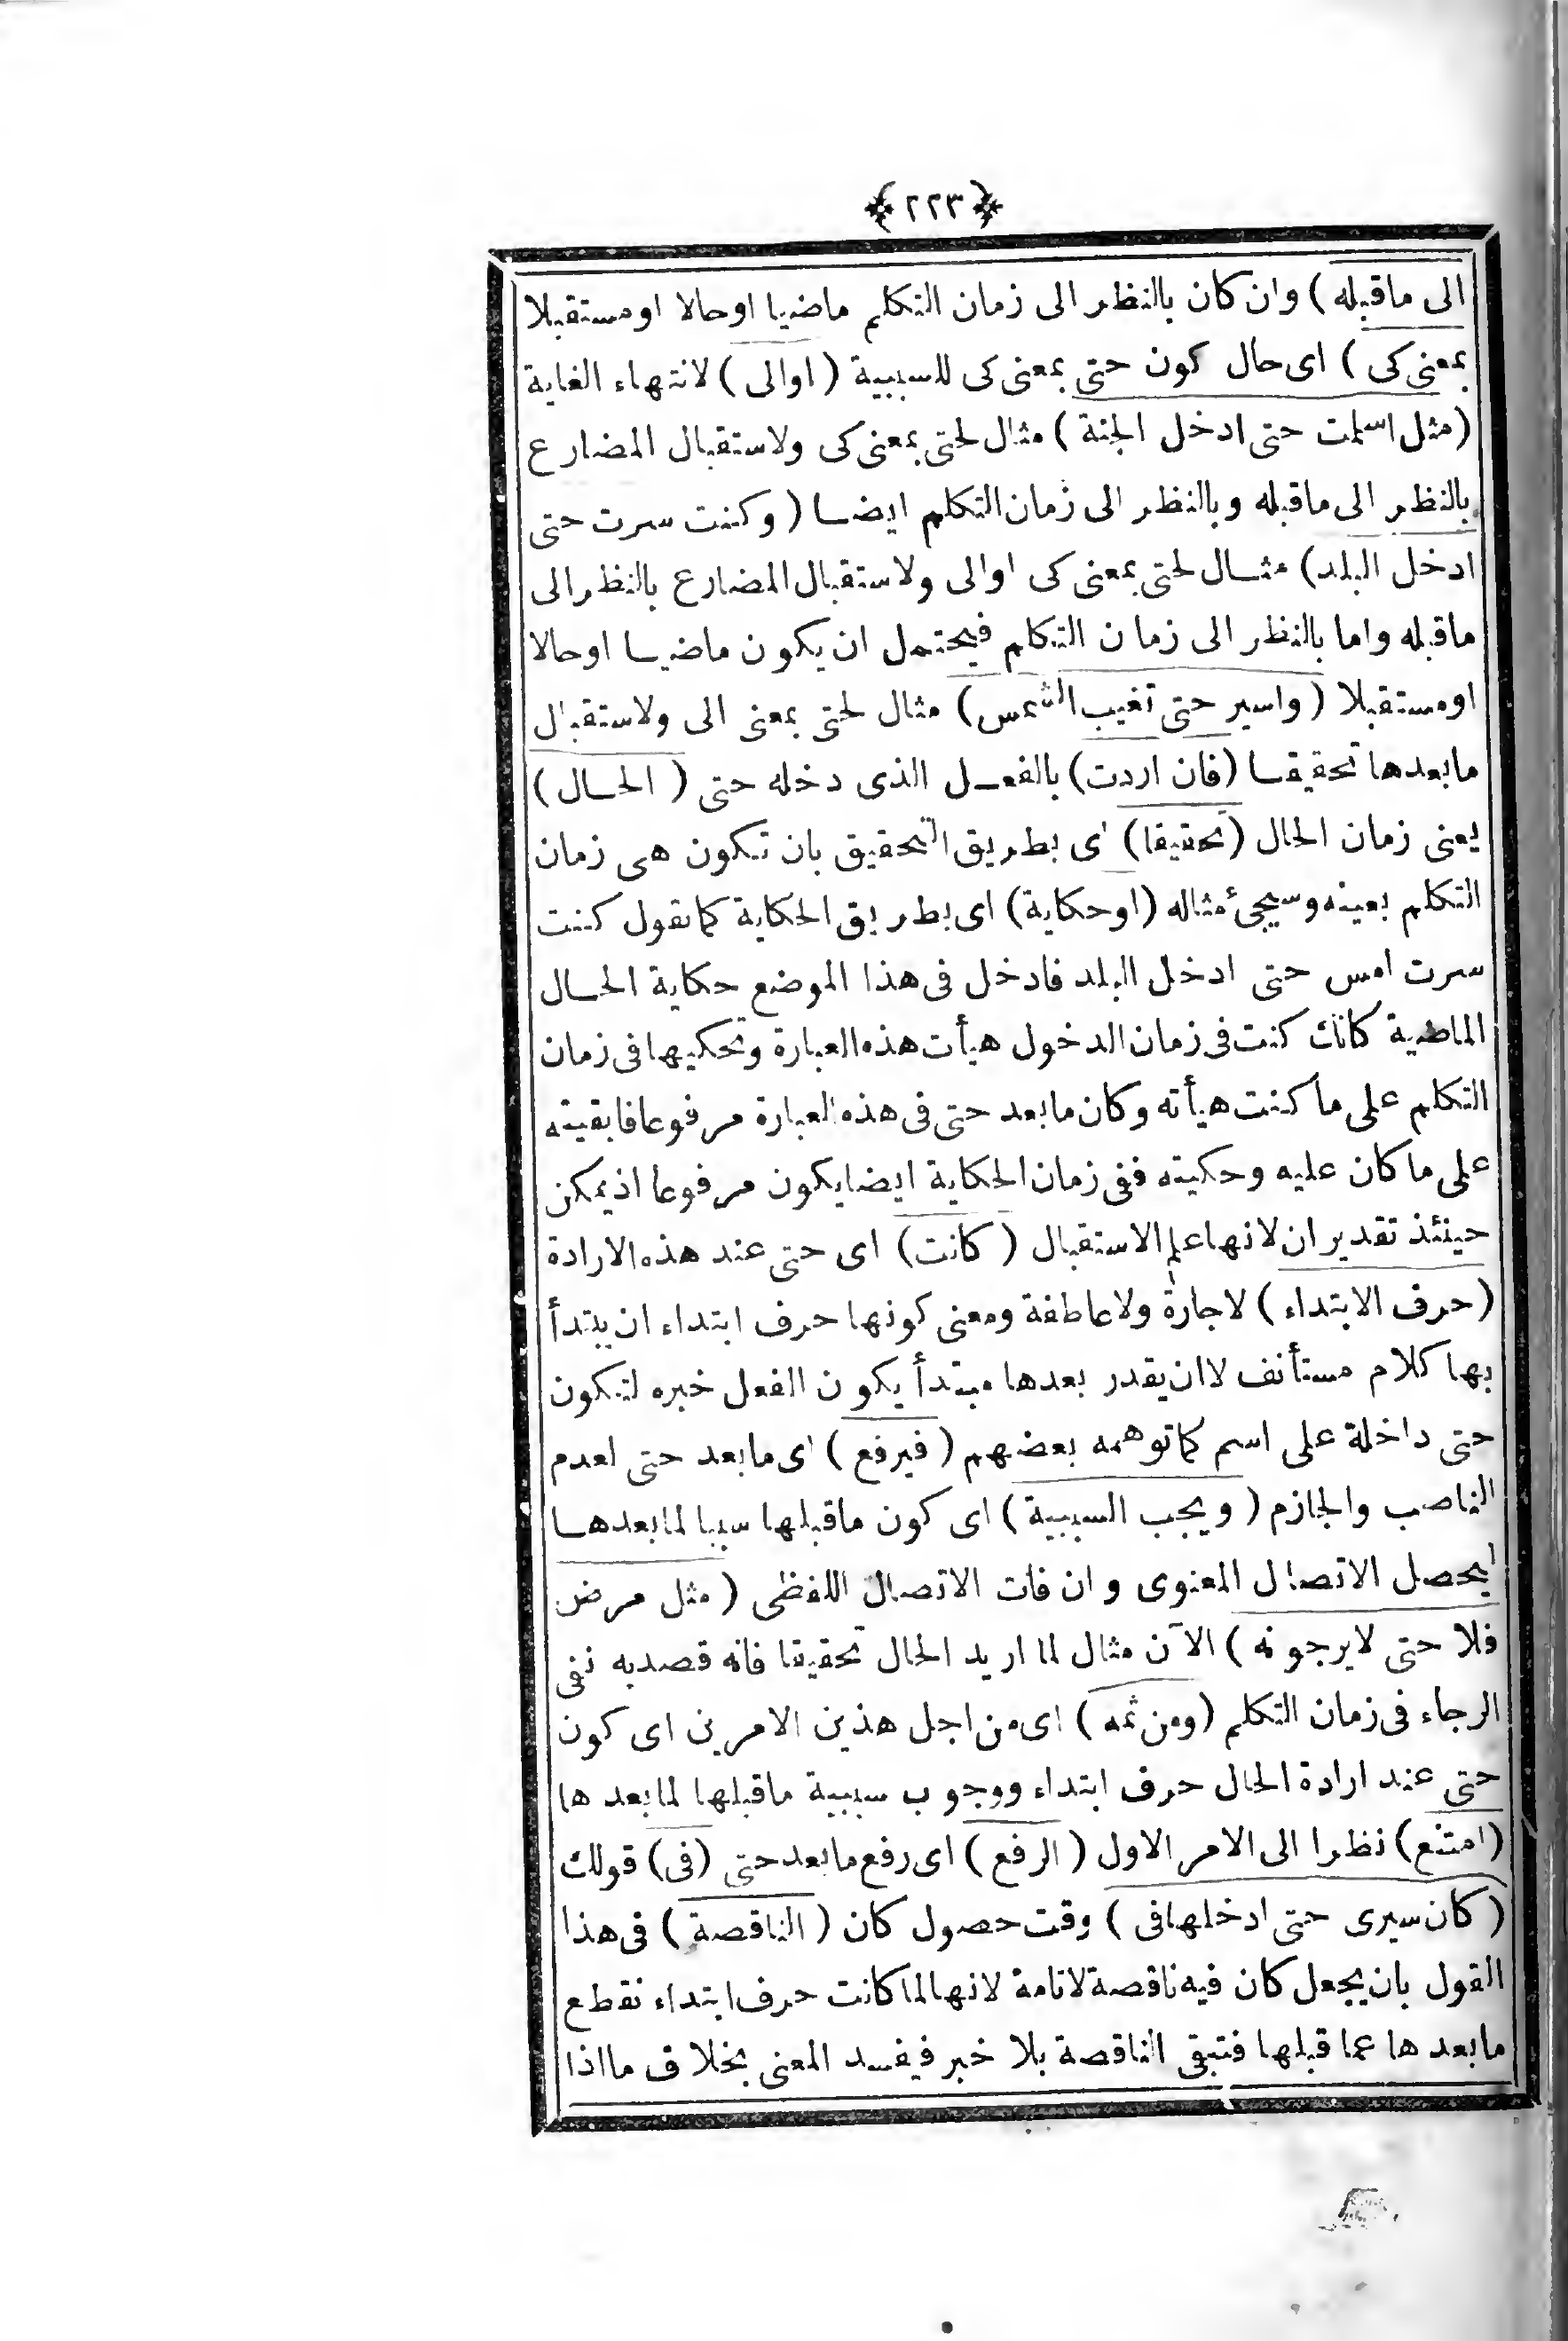 ﴿ ٢٢٣ ﴾
الى ماقبله ) وان كان بالنظر الى زمان التكلم ماضيا اوحالا اومستقبلا
بمعنى كى ) اى حال كون حتى بمعنى كى للسببية ( اوالى ) لانتهاء الغاية
( مثل اسلمت حتى ادخل الجنة ) مثال لحتى بمعنى كى ولاستقبال المضارع
بالنظر الى ماقبله وبالنظر الى زمان التكلم ايضا ( وكنت سرت حتى
ادخل البلد ) مثال لحتى بمعنى كى اوالى ولاستقبال المضارع بالنظر الى
ماقبله واما بالنظر الى زمان التكلم فيحتمل ان يكون ماضيا اوحالا
اومستقبلا ( واسير حتى تغيب الشمس ) مثال لحتى بمعنى الى ولاستقبال
مابعدها تحقيقا ( فان اردت ) بالفعل الذى دخله حتى ( الحال )
يعنى زمان الحال ( تحقيقا ) اى بطريق التحقيق بان تكون هى زمان
التكلم بعينه وسيجىء مثاله ( اوحكاية ) اى بطريق الحكاية كما تقول كنت
سرت امس حتى ادخل البلد فادخل فى هذا الموضع حكاية الحال
الماضية كانك كنت فى زمان الدخول هيأت هذه العبارة وتحكيها فى زمان
التكلم على ما كنت هيأته وكان مابعد حتى فى هذه العبارة مرفوعا فابقيته
على ما كان عليه وحكيته ففى زمان الحكاية ايضا يكون مرفوعا اذ يمكن
حينئذ تقدير ان لانها علم الاستقبال ( كانت ) اى حتى عند هذه الارادة
( حرف الابتداء ) لا جارة ولا عاطفة ومعنى كونها حرف ابتداء ان يبتدأ
بها كلام مستأنف لا ان يقدر بعدها مبتدأ يكون الفعل خبره لتكون
حتى داخلة على اسم كما توهمه بعضهم ( فيرفع ) اى مابعد حتى لعدم
الناصب والجازم ( ويجب السببية ) اى كون ماقبلها سببا لمابعدها
ليحصل الاتصال المعنوى وان فات الاتصال اللفظى ( مثل مرض
فلا حتى لا يرجونه ) الآن مثال لما اريد الحال تحقيقا فانه قصد به نفى
الرجاء فى زمان التكلم ( ومن ثمه ) اى من اجل هذين الامرين اى كون
حتى عند ارادة الحال حرف ابتداء ووجوب سببية ماقبلها لمابعدها
( امتنع ) نظرا الى الامر الاول ( الرفع ) اى رفع مابعد حتى ( فى ) قولك
( كان سيرى حتى ادخلها فى ) وقت حصول كان ( الناقصة ) فى هذا
القول بان يجعل كان فيه ناقصة لا تامة لانها لما كانت حرف ابتداء نقطع
مابعدها عما قبلها فتبقى الناقصة بلا خبر فيفسد المعنى بخلاف مااذا